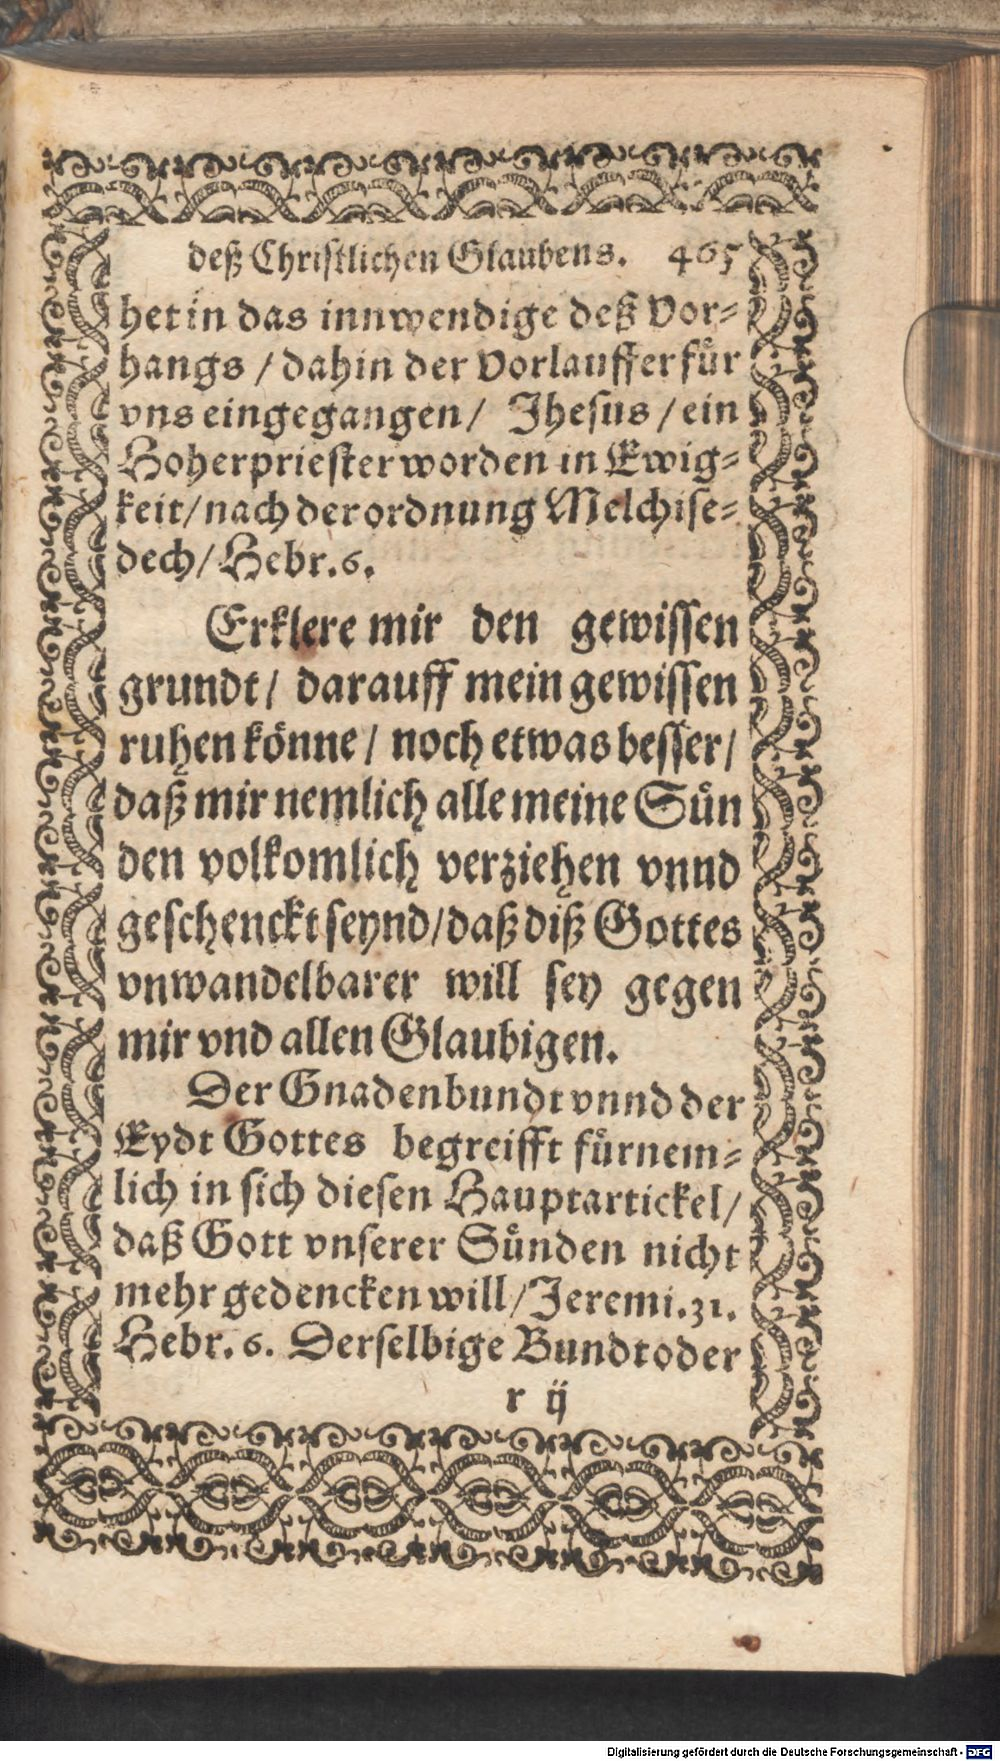 deß Christlichen Glaubens. 465
het in das innwendige deß Vor⸗
hangs / dahin der Vorlauffer fuͤr
vns eingegangen / Jhesus / ein
Hoherpriester worden in Ewig⸗
keit / nach der ordnung Melchise⸗
dech / Hebr. 6.
Erklere mir den gewissen
grundt / darauff mein gewissen
ruhen koͤnne / noch etwas besser /
daß mir nemlich alle meine Suͤn
den volkomlich verziehen vnnd
geschenckt seynd / daß diß Gottes
vnwandelbarer will sey gegen
mir vnd allen Glaubigen.
Der Gnadenbundt vnnd der
Eydt Gottes begreifft fuͤrnem⸗
lich in sich diesen Hauptartickel /
daß Gott vnserer Suͤnden nicht
mehr gedencken will / Jeremi. 31.
Hebr. 6. Derselbige Bundt oder
r ij
Digitalisierung gefördert durch die Deutsche Forschungsgemeinschaft - DFG